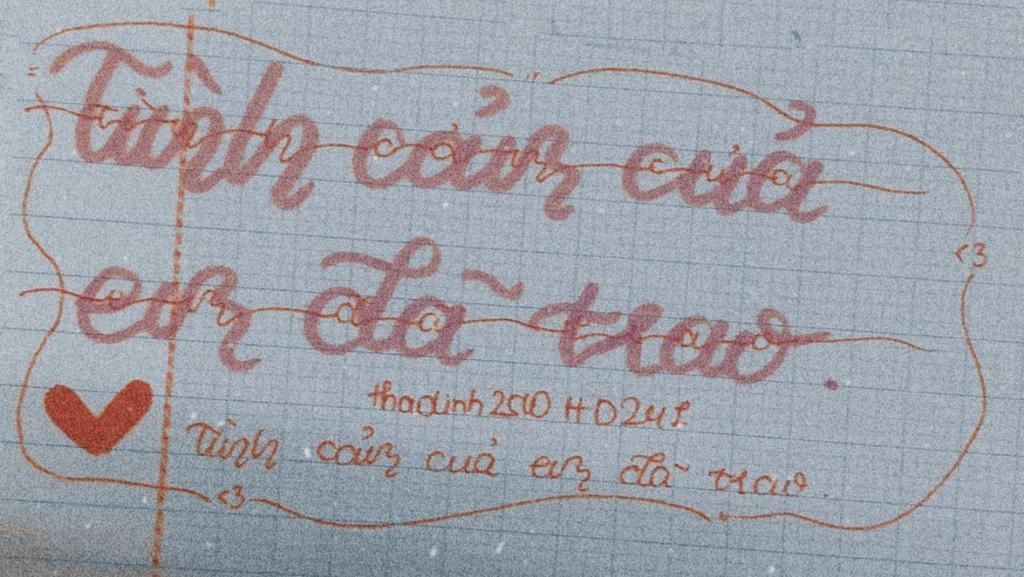 Tình cảm của
<3
em đã trao.
Tình cảm của em đã trao.
<3